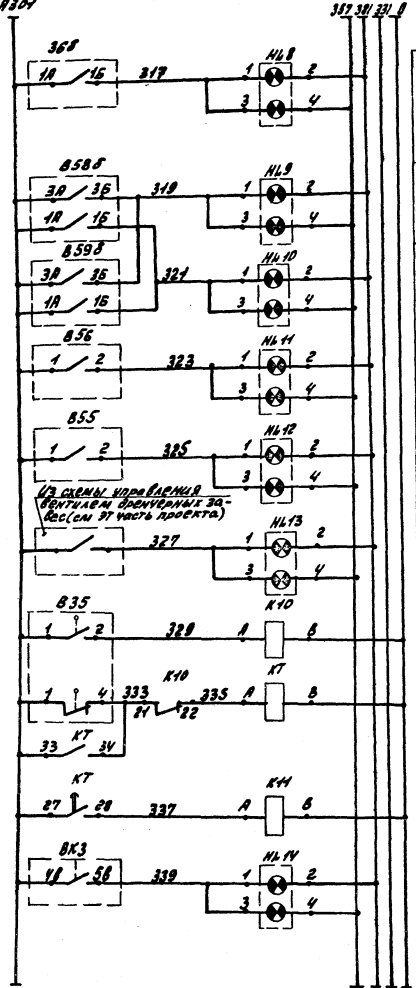 А301 387 381 331 0
368
1А 1Б 317 1 HL8 2
3 4
В58б
3А 3Б 319 1 HL9 2
1А 1Б 3 4
В59б
3А 3Б 321 1 HL10 2
1А 1Б 3 4
В56
1 2 323 1 HL11 2
3 4
В55
1 2 325 1 HL12 2
3 4
Из схемы управления
вентилем дренчерных за-
вес (см ЭТ часть проекта)
327 1 HL13 2
3 4
В35 К10
1 2 329 А В
1 4 333 К10 335 А КТ В
21 22
33 КТ 34
КТ К11
27 28 337 А В
ВК3
4В 5В 339 1 HL14 2
3 4